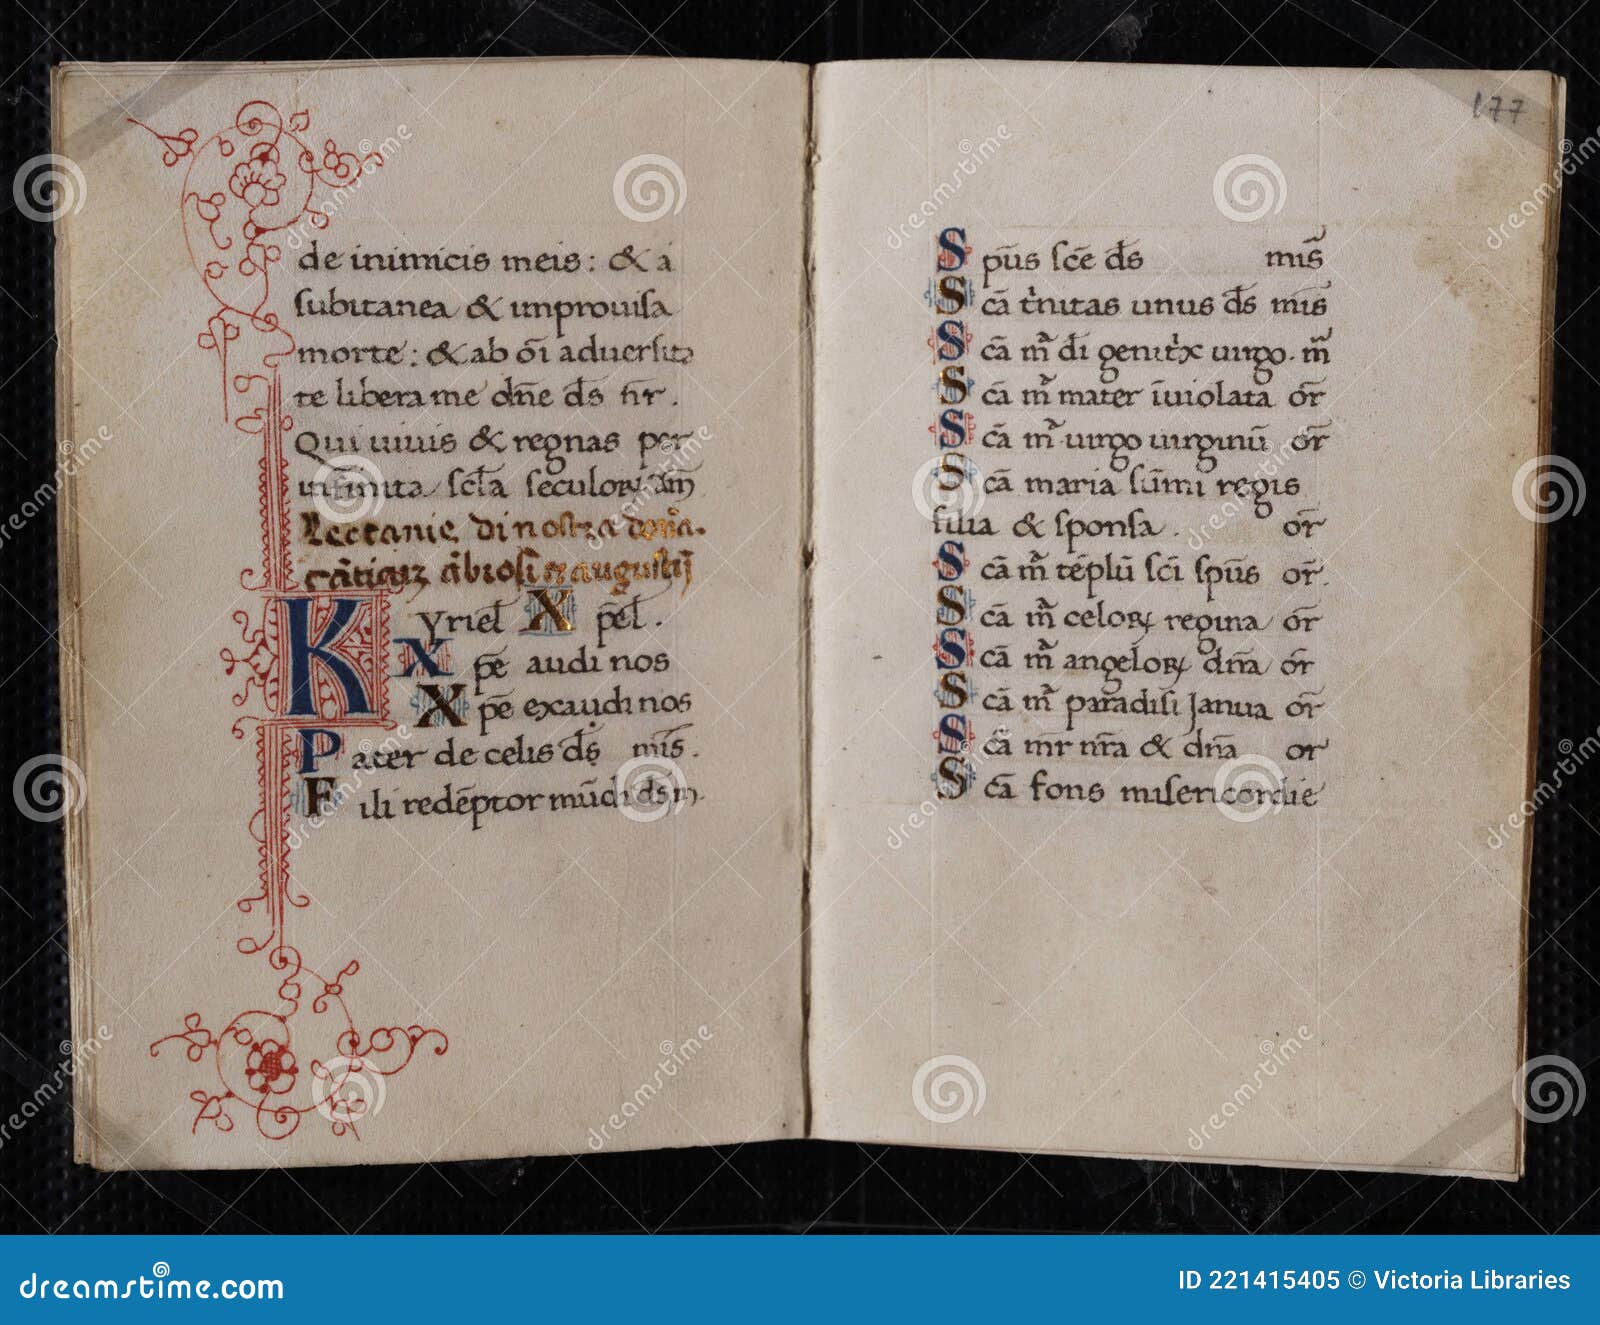 de inimicis meis: & a
subitanea & improuisa
morte: & ab o͞i aduersita
te libera me dn͞e d͞s n͞r.
Qui uiuis & regnas per
infinita sc͞la seculoꝝ am͞
Lectanie di nostra dona.
Kyriel͞ Xp͞el͞.
Xp͞e audi nos
Xp͞e exaudi nos
Pater de celis d͞s mi͞s.
Fili rede͞ptor mu͞di d͞s m
177
Spu͞s sc͞e d͞s mi͞s
Sca͞ trinitas unus d͞s mi͞s
Sca͞ m͞ d͞i genitrix uirgo. m͞
Sca͞ m͞ mater i͞uiolata or͞
Sca͞ m͞ uirgo uirginu͞ or͞
Sca͞ maria su͞mi regis
filia & sponsa. or͞
Sca͞ m͞ te͞plu͞ sc͞i spu͞s or͞.
Sca͞ m͞ celoꝝ regina or͞
Sca͞ m͞ angeloꝝ dn͞a or͞
Sca͞ m͞ paradisi Janua or͞
Sca͞ mr͞ nr͞a & dn͞a or
Sca͞ fons misericordie
dreamstime
ID 221415405 © Victoria Libraries